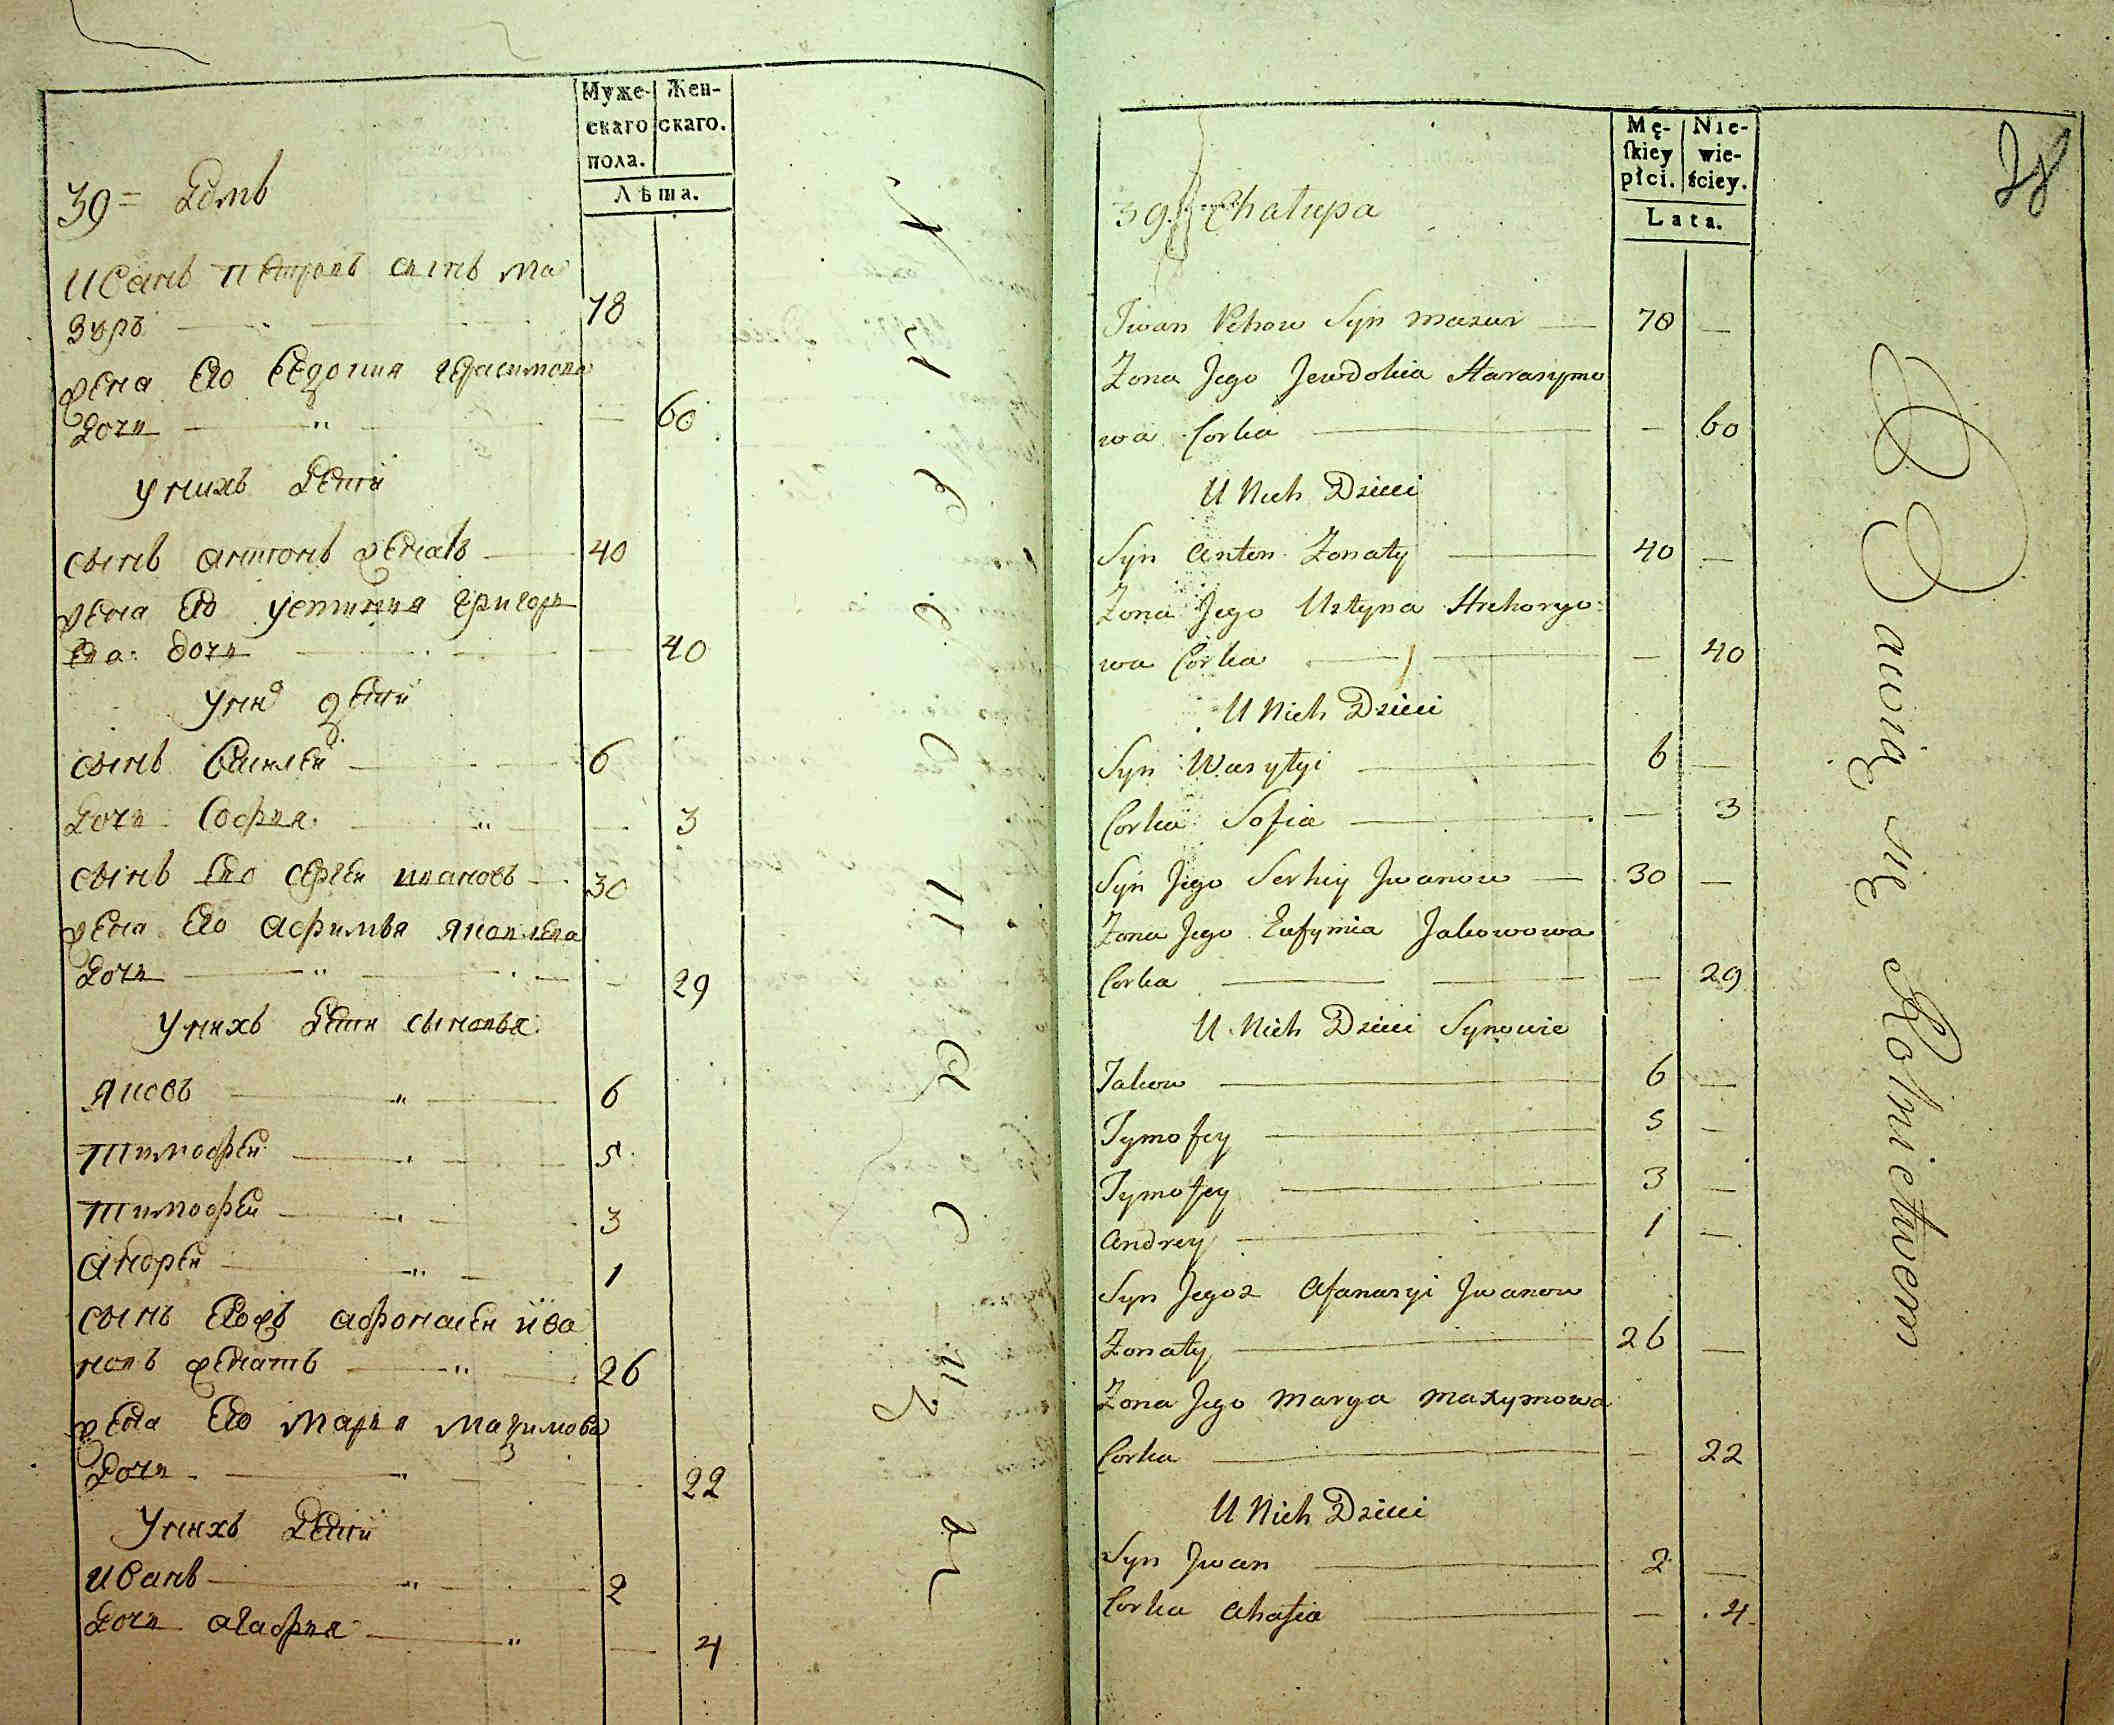 Муже-
скаго
пола.
Жен-
скаго.
Лѣта.
39 = Домъ
Иванъ Петровъ сынъ Ма
зуръ 78
жена Его Евдокия Герасимова
дочь 60
у нихъ дети
сынъ Антонъ женатъ 40
жена Его Устиния Григорь
ева дочь 40
у них дети
сынъ Василеи 6
дочь София 3
сынъ Его Сергеи Ивановъ 30
жена Его Афимья Яковлева
дочь 29
у нихъ дети сыновья
Яковъ 6
Тимофеи 5
Тимофеи 3
Андреи 1
сынъ Егожъ Афонасеи Ива
новъ женатъ 26
жена Его Марья Мазимова
дочь 22
у нихъ дети
Иванъ 2
дочь Агафия 4
28
Mę-
skiey
płci.
Nie-
wie-
ściey.
Lata.
39 Chałupa
Iwan Petrow Syn Mazur — 78 —
Zona Jego Jewdokia Harasymo
wa Corka — — 60
U Nich Dzieci
Syn Anton Zonaty — 40 —
Zona Jego Ustyna Hrehoryo:
wa Corka — — 40
U Nich Dzieci
Syn Wasyłyi — 6 —
Corka Sofia — — 3
Syn Jego Serhiy Jwanow — 30 —
Zona Jego Eufymia Jakowowa
Corka — — 29
U Nich Dzieci Synowie
Jakow — 6 —
Tymofey — 5 —
Tymofey — 3 —
Andrey — 1 —
Syn Jegoz Afanasyi Jwanow
Zonaty — 26 —
Zona Jego Marya Maxymowa
Corka — — 22
U Nich Dzieci
Syn Jwan — 2 —
Corka Ahafia — — 4
Bawią się Rolnictwem